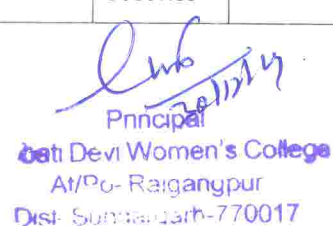 20/12/24
Principal
Devi Women's College
At/Po- Rajganypur
Dist- Sundargarh-770017